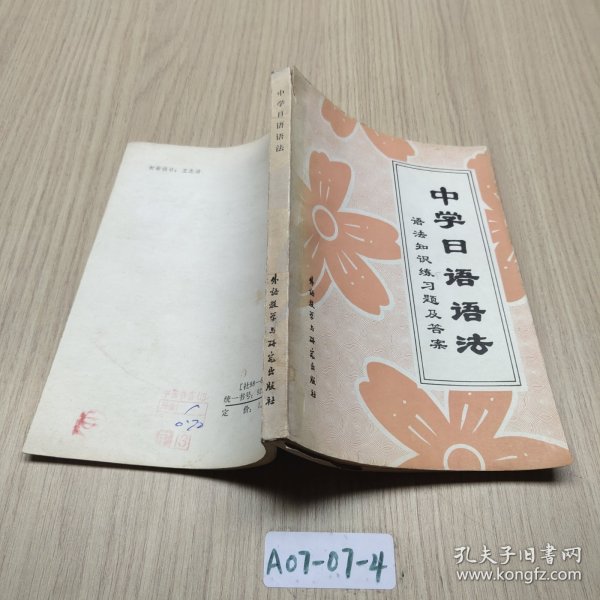 中学日语语法
语法知识练习题及答案
外语教学与研究出版社
中学日语语法
外语教学与研究出版社
统一书号:
定 价:
0.72
A07-07-4
孔夫子旧书网
www.kongfz.com